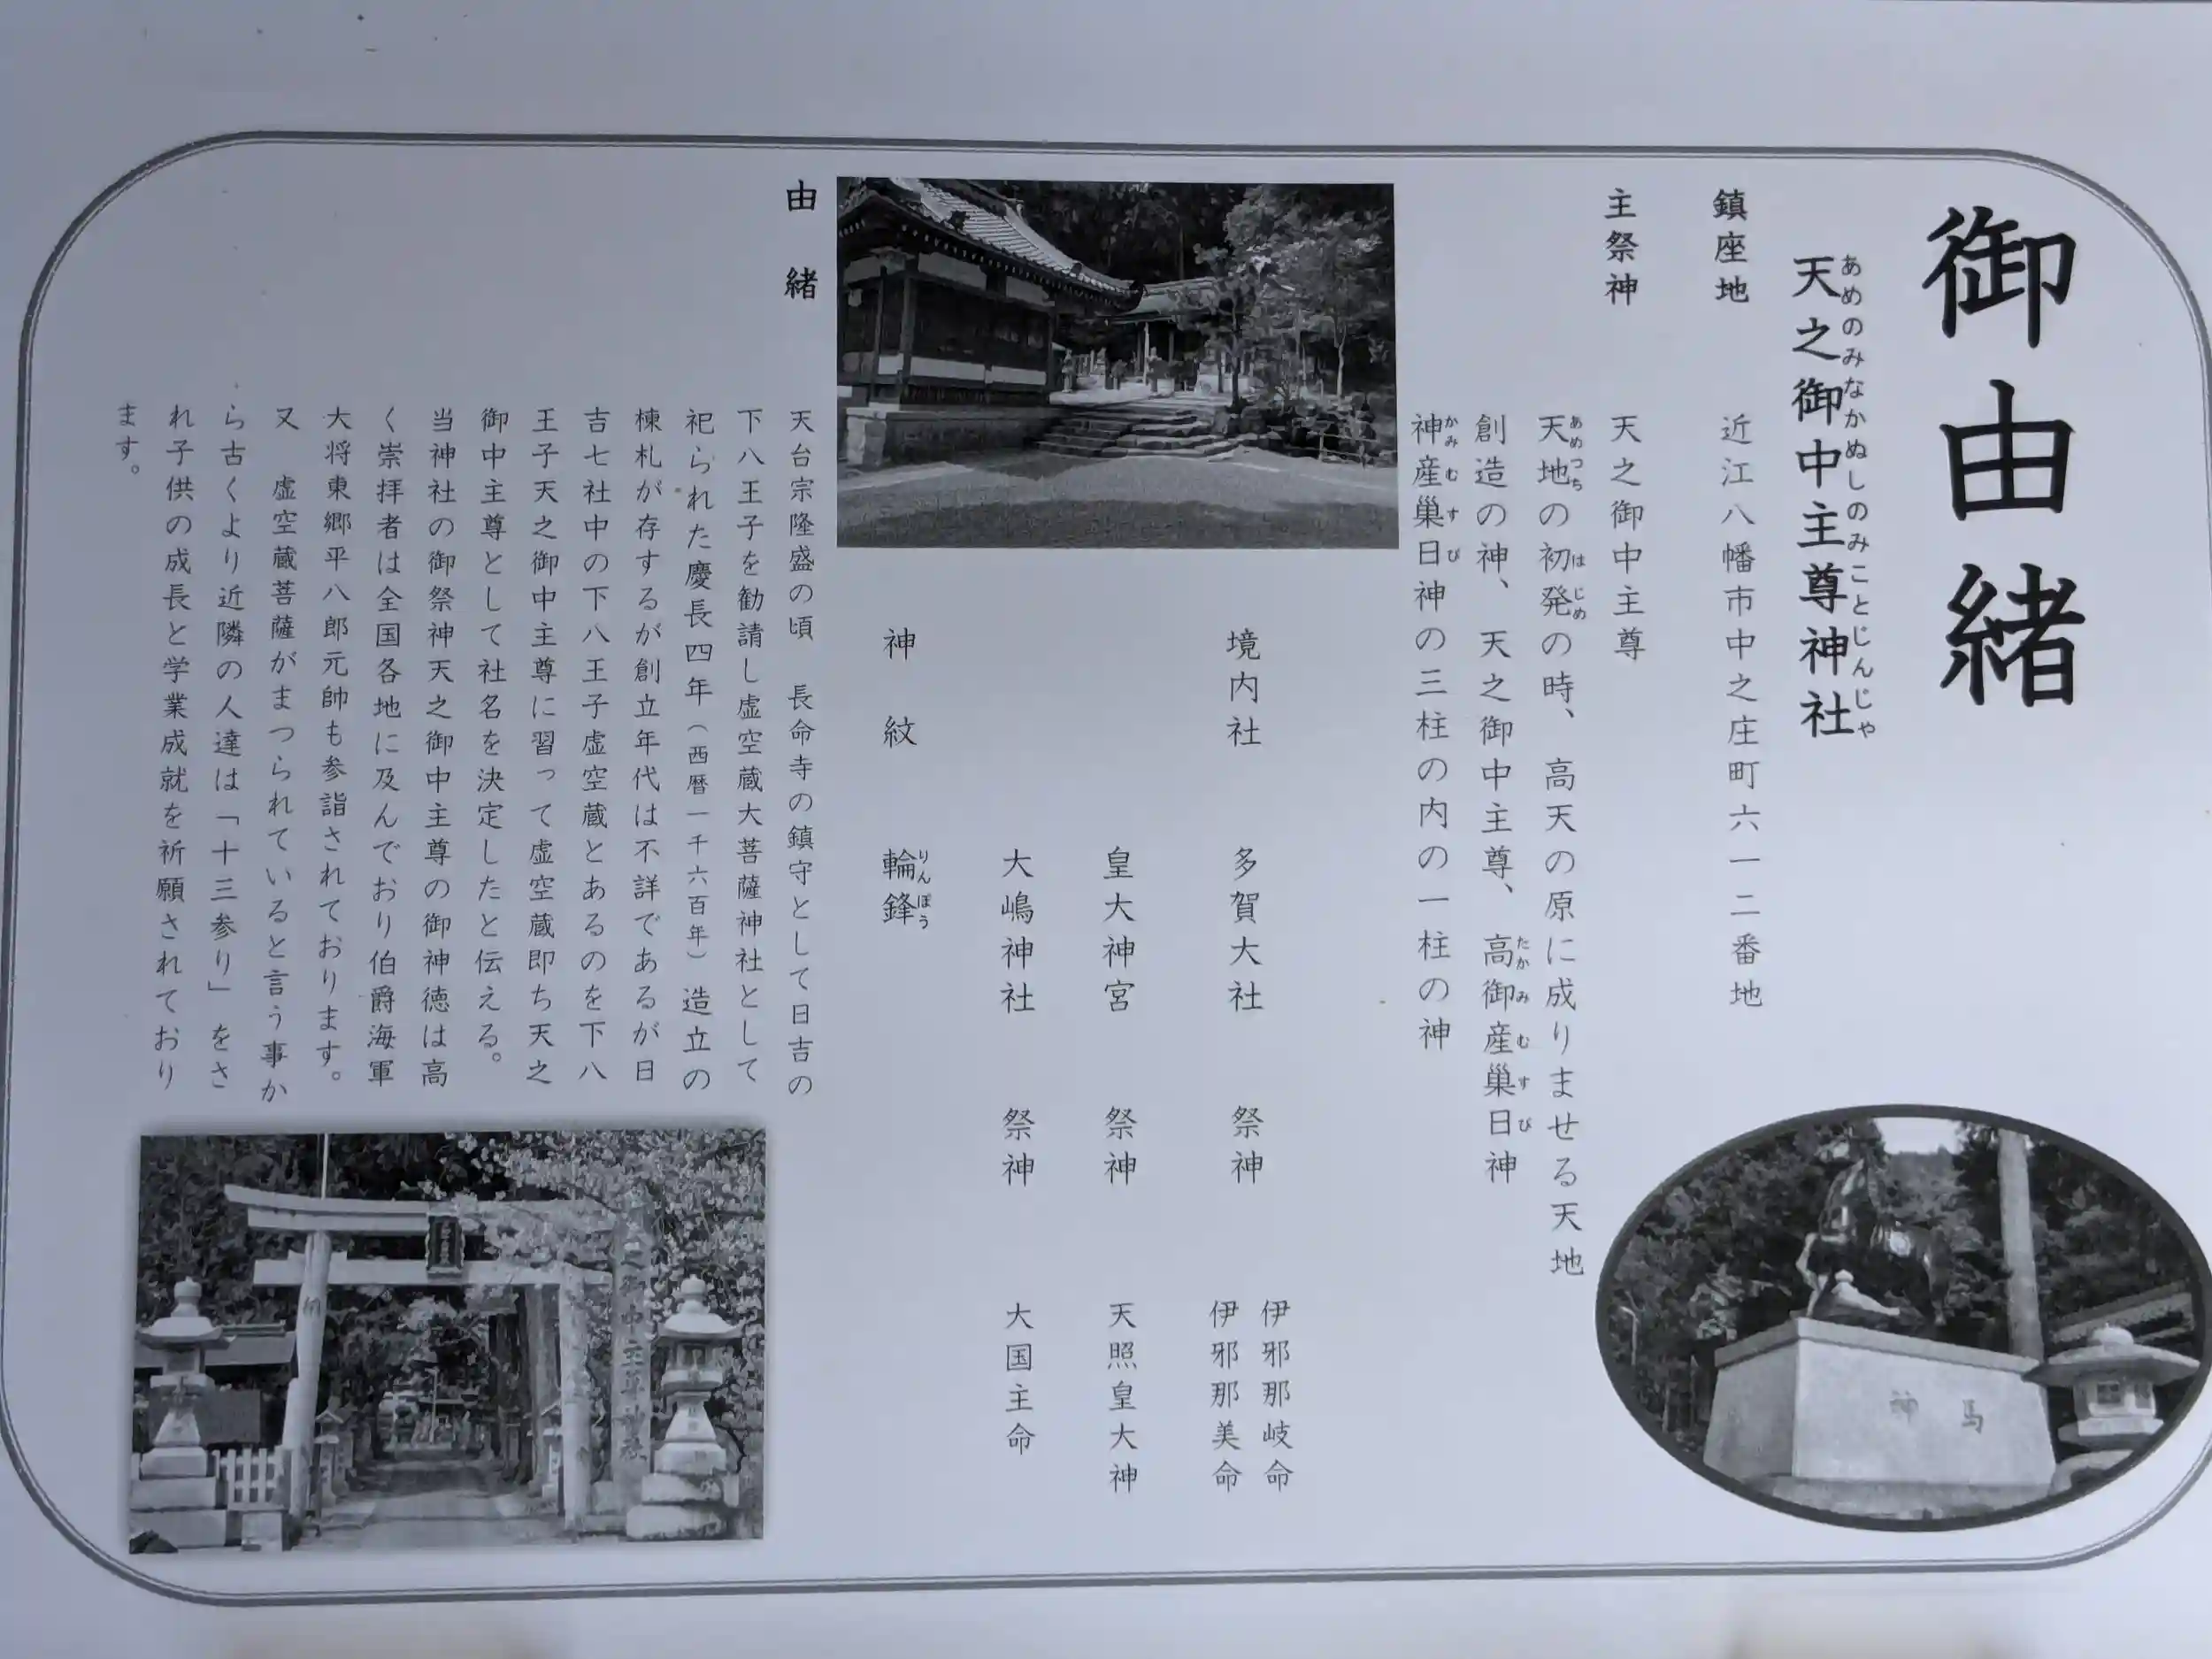 御由緒
天之御中主尊神社
あめのみなかぬしのみことじんじゃ
鎮座地 近江八幡市中之庄町六一二番地
主祭神 天之御中主尊
天地の初発の時、高天の原に成りませる天地
あめつち はじめ
創造の神、天之御中主尊、高御産巣日神
たかみむすび
神産巣日神の三柱の内の一柱の神
かみむすび
境内社 多賀大社 祭神 伊邪那岐命
伊邪那美命
皇大神宮 祭神 天照皇大神
大嶋神社 祭神 大国主命
神紋 輪鋒
りんぽう
由緒
天台宗隆盛の頃 長命寺の鎮守として日吉の
下八王子を勧請し虚空蔵大菩薩神社として
祀られた慶長四年(西暦一千六百年)造立の
棟札が存するが創立年代は不詳であるが日
吉七社中の下八王子虚空蔵とあるのを下八
王子天之御中主尊に習って虚空蔵即ち天之
御中主尊として社名を決定したと伝える。
当神社の御祭神天之御中主尊の御神徳は高
く崇拝者は全国各地に及んでおり伯爵海軍
大将東郷平八郎元帥も参詣されております。
又 虚空蔵菩薩がまつられていると言う事か
ら古くより近隣の人達は「十三参り」をさ
れ子供の成長と学業成就を祈願されており
ます。
神馬
之御中主尊神社